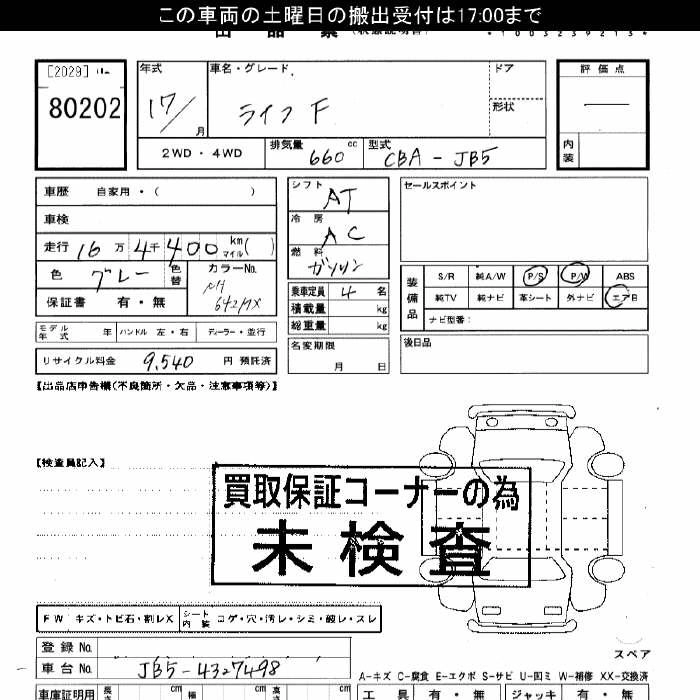 この車両の土曜日の搬出受付は17:00まで
[2029]
80202
年式
17/
月
車名・グレード
ライフ F
ドア
形状
評価点
内装
2WD・4WD
排気量
660 cc
型式
CBA - JB5
車歴 自家用・( )
車検
走行 16万 4千 400 km マイル ( )
色 グレー 色替
カラーNo.
NH
642MX
保証書 有・無
モデル年式 年 ハンドル 左・右 ディーラー・並行
リサイクル料金 9,540 円 預託済
シフト
AT
冷房
AC
燃料
ガソリン
乗車定員 4 名
積載量 kg
総重量 kg
名変期限
月 日
セールスポイント
装備品
S/R 純A/W P/S P/W ABS
純TV 純ナビ 革シート 外ナビ エアB
ナビ型番:
後日品
【出品店申告欄(不良箇所・欠品・注意事項等)】
【検査員記入】
買取保証コーナーの為
未検査
FW キズ・トビ石・割レX シート内装 コゲ・穴・汚レ・シミ・破レ・スレ
登録 No.
車台 No. JB5-4327498
スペア
A-キズ C-腐食 E-エクボ S-サビ U-凹ミ W-補修 XX-交換済
車庫証明用 長さ cm 幅 cm 高さ cm
工具 有・無 ジャッキ 有・無